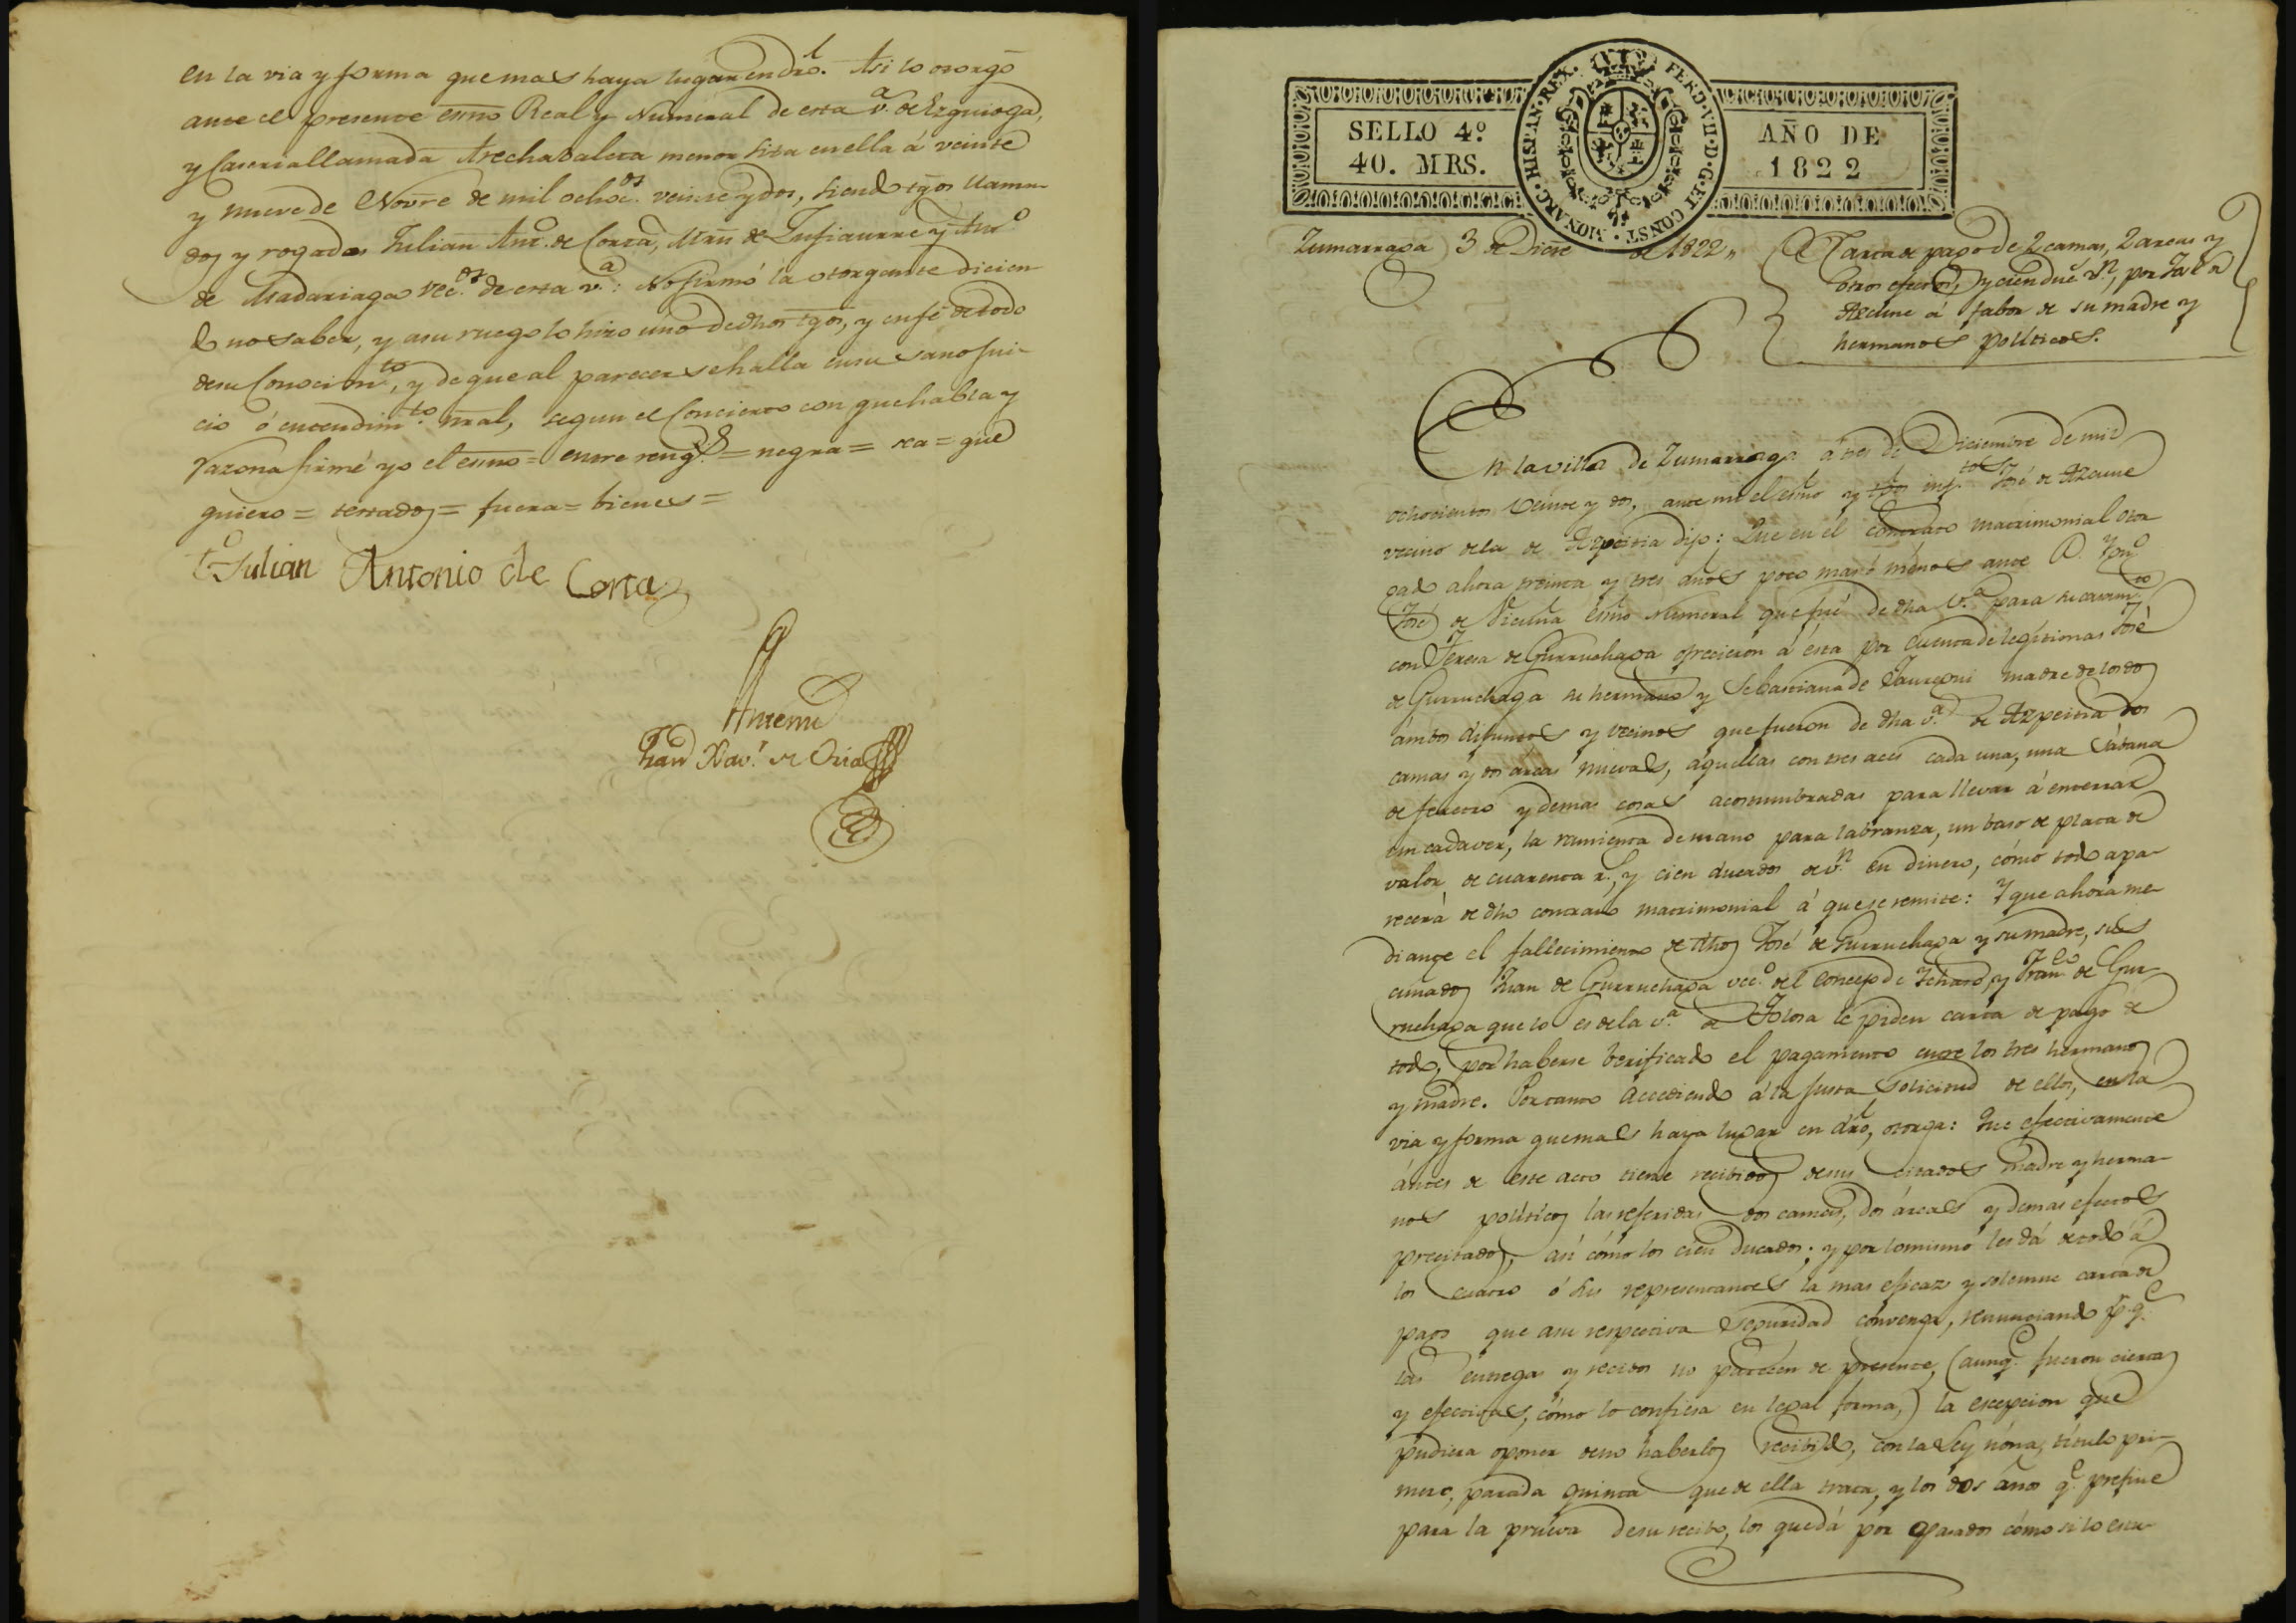 en la via y forma que mas haya lugar en dro. Asi lo otorgó
ante el presente esnno Real y Numeral de esta v.ª de Ezquioga,
y Caseria llamada Arechavaleta menor sita en ella á veinte
y nueve de Novre de mil ochoc.os veinte y dos, siendo tgos llama-
dos y rogados Julian Ant.o de Corta, Mrn de Insausti y Ant.o
de Madariaga vec.os de esta v.ª: No firmó la otorgante dicien-
do no saber, y a su ruego lo hizo uno de dhos tgos, y en fé de todo
de su Conocim.to, y de que al parecer se halla en su sano jui-
cio ó entendim.to nral, segun el Concierto con que habla y
razona firmé yo el esnno = entre reng.s = negra = sea = que
quiero = testado = fuera = bienes =
t.o Julian Antonio de Corta
Antemi
Fran.co Xav.r de Oria
SELLO 4º
40. MRS.
HISPAN·REX. FERD·VII·D·G·ET CONST·MONARC·
AÑO DE
1822
Zumarraga 3 de Dicre de 1822,,
Carta de pago de 2 camas, 2 arcas y
otros efectos, y cien duc.s v.n, por José
Azcune á fabor de su madre y
hermanos políticos.
En la villa de Zumarraga á tres de Diciembre de mil
ochocientos veinte y dos, ante mi el esno y tgos inf.tos José de Azcune
vecino de la de Azpeitia dijo: Que en el contrato matrimonial otor
gado ahora treinta y tres años poco mas ó menos ante D. Ygn.o
José de Vicuña esno Numeral que fué de dha v.ª para su casam.to
con Teresa de Gurruchaga ofrecieron á ésta por cuenta de legítimas José
de Gurruchaga su hermano y Sebastiana de Jauregui madre de los dos
ámbos difuntos y vecinos que fueron de dha v.ª de Azpeitia dos
camas y dos arcas nuevas, aquellas con tres aces cada una, una sábana
de feretro y demas cosas acostumbradas para llevar á enterrar
un cadaver, la ramienta de mano para labranza, un baso de plata de
valor de cuarenta r.s, y cien ducados de v.n en dinero, cómo todo apa-
recerá de dho contrato matrimonial á que se remite: Y que ahora me-
diante el fallecimiento de dhos José de Gurruchaga y su madre, sus
cuñados Juan de Gurruchaga vec.o del Concejo de Ychaso, y Fran.co de Gur-
ruchaga que lo es de la v.ª de Tolosa le piden carta de pago de
todo, por haberse berificado el pagamento entre los tres hermanos
y madre. Por tanto accediendo á la justa solicitud de ellos, en la
via y forma que mas haya lugar en dro, otorga: Que efectivamente
ántes de este acto tiene recibido de sus citados madre y herma-
nos políticos las referidas dos camas, dos árcas y demas efectos
precitados, así cómo los cien ducados; y por lo mismo les dá de todo á
los cuatro ó sus representantes la mas eficaz y solemne carta de
pago que a su respectiva seguridad convenga, renunciando p.r q.e
las entregas y recibos no parecen de presente, (aunq.e fueron ciertas
y efectivas, cómo lo confiesa en legal forma,) la escepcion que
pudiera oponer de no haberlos recibido, con la Ley nona, titulo pri-
mero, partida quinta que de ella trata, y los dos años q.e prefine
para la prueva de su recibo, los que dá por pasados cómo si lo estu-